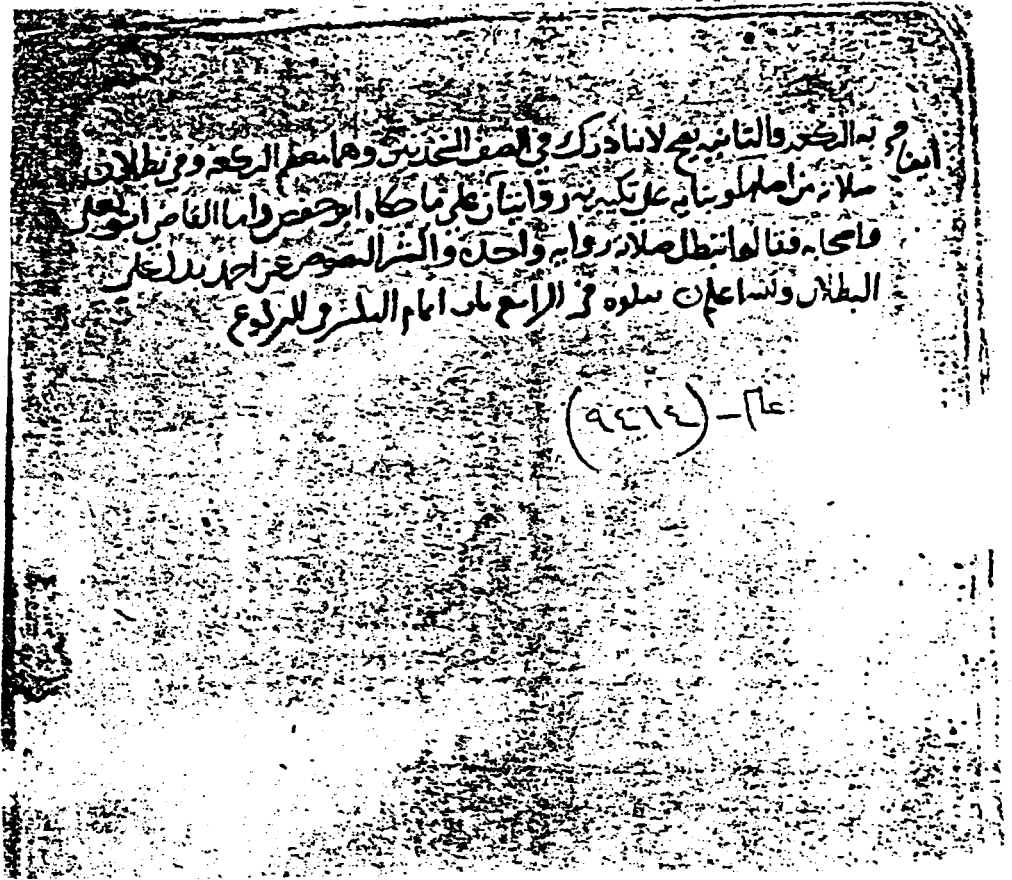 به الركعة والثانية يصح لانه ادرك في الصف السجدتين وهما معظم الركعة وفي بطلان
صلاته من اصلها وبنائه على تكبيرته روايتان على ما حكاه ابو حفص واما القاضي ابو يعلى
واصحابه فقالوا تبطل صلاته رواية واحدة واكثر النصوص عن احمد يدل على
البطلان والله اعلم يتلوه في الرابع باب امام
ايضا
عام - (٩٤١٤)